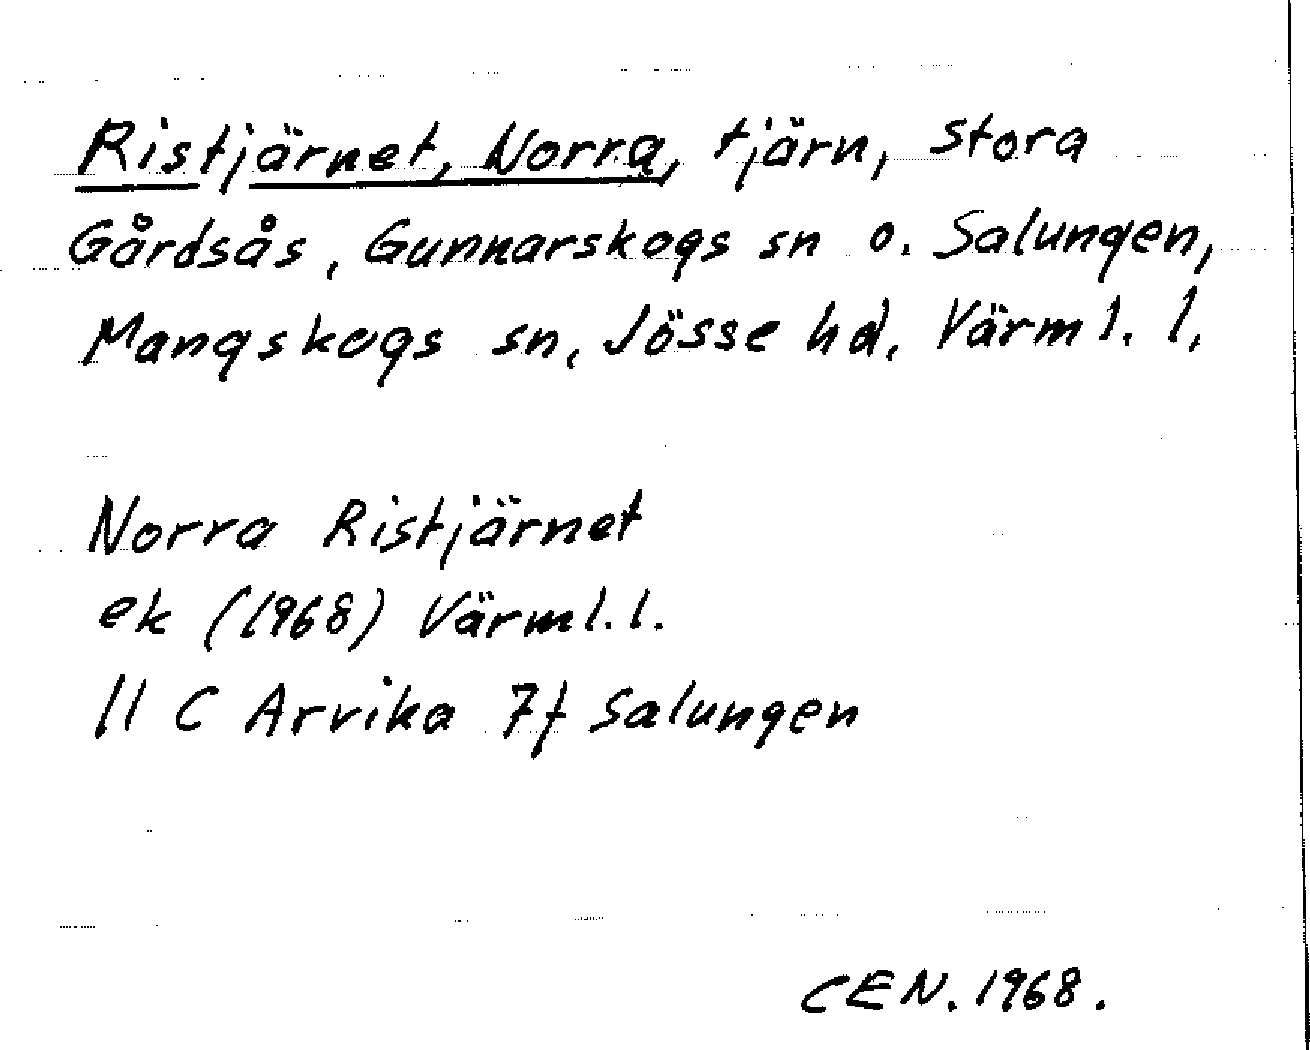 Ristjärnet, Norra, tjärn, Stora
Gårdsås, Gunnarskogs sn o. Salungen,
Mangskogs sn, Jösse hd, Värml. l,
Norra Ristjärnet
ek (1968) Värml. l.
11 C Arvika 7f Salungen
CEN. 1968.